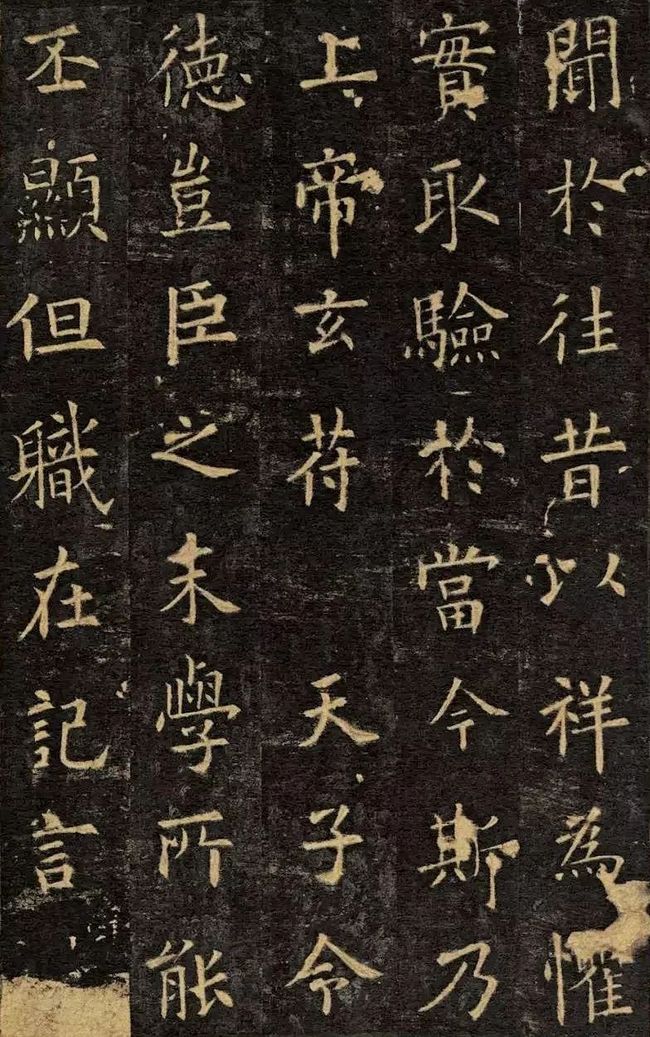 聞於往昔以祥為懼
實取驗於當今斯乃
上帝玄苻 天子令
德豈臣之末學所能
丕顯但職在記言